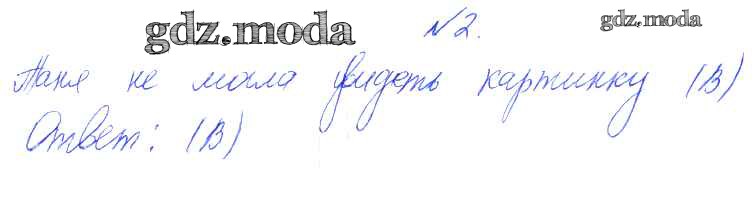 gdz.moda
gdz.moda
№2.
Таня не могла увидеть картинку (В)
Ответ: (В)